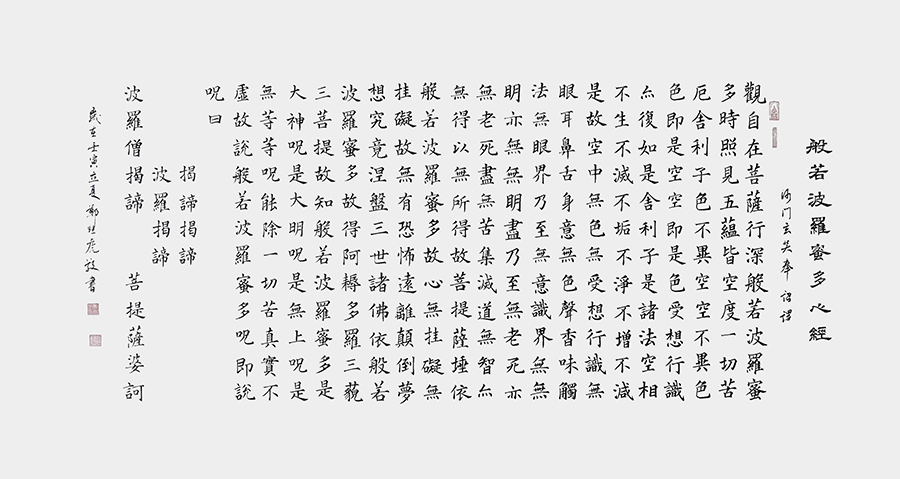 般若波羅蜜多心經
沙门玄奘奉詔譯
觀自在菩薩行深般若波羅蜜
多時照見五蘊皆空度一切苦
厄舍利子色不異空空不異色
色即是空空即是色受想行識
亦復如是舍利子是諸法空相
不生不滅不垢不淨不增不減
是故空中無色無受想行識無
眼耳鼻舌身意無色聲香味觸
法無眼界乃至無意識界無無
明亦無無明盡乃至無老死亦
無老死盡無苦集滅道無智亦
無得以無所得故菩提薩埵依
般若波羅蜜多故心無挂礙無
挂礙故無有恐怖遠離顛倒夢
想究竟涅盤三世諸佛依般若
波羅蜜多故得阿耨多羅三藐
三菩提故知般若波羅蜜多是
大神呪是大明呪是無上呪是
無等等呪能除一切苦真實不
虛故說般若波羅蜜多呪即說
呪曰
揭諦揭諦
波羅揭諦
波羅僧揭諦 菩提薩婆訶
歲在壬寅立夏敬書